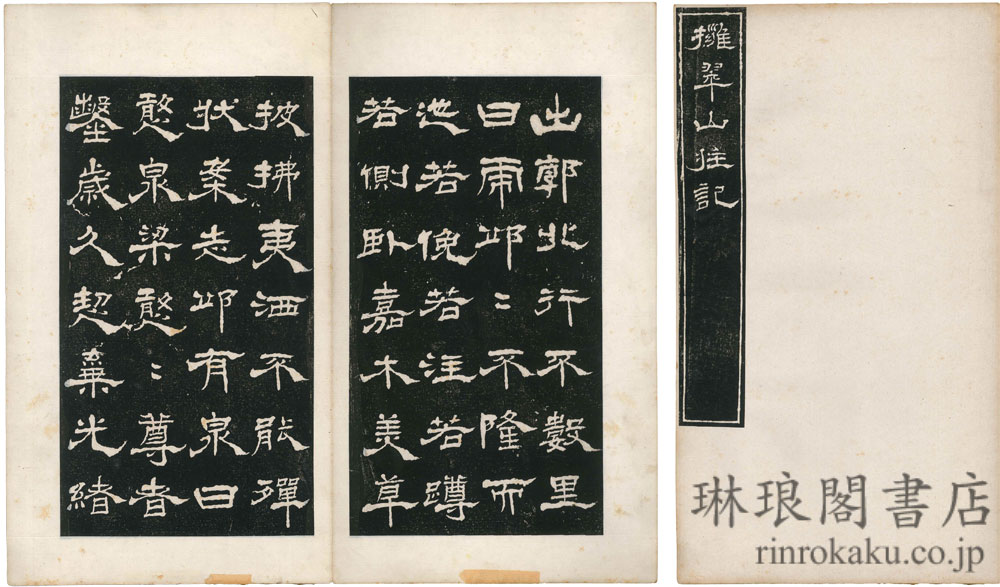 擁翠山莊記
出郭北行不數里
曰虎邱〻不隆而
迆若俛若注若蹲
若側卧嘉木美草
披拂夷洒不能殫
狀案志邱有泉曰
憨泉梁憨〻尊者
鑿歲久棄光緒
琳琅閣書店
rinrokaku.co.jp